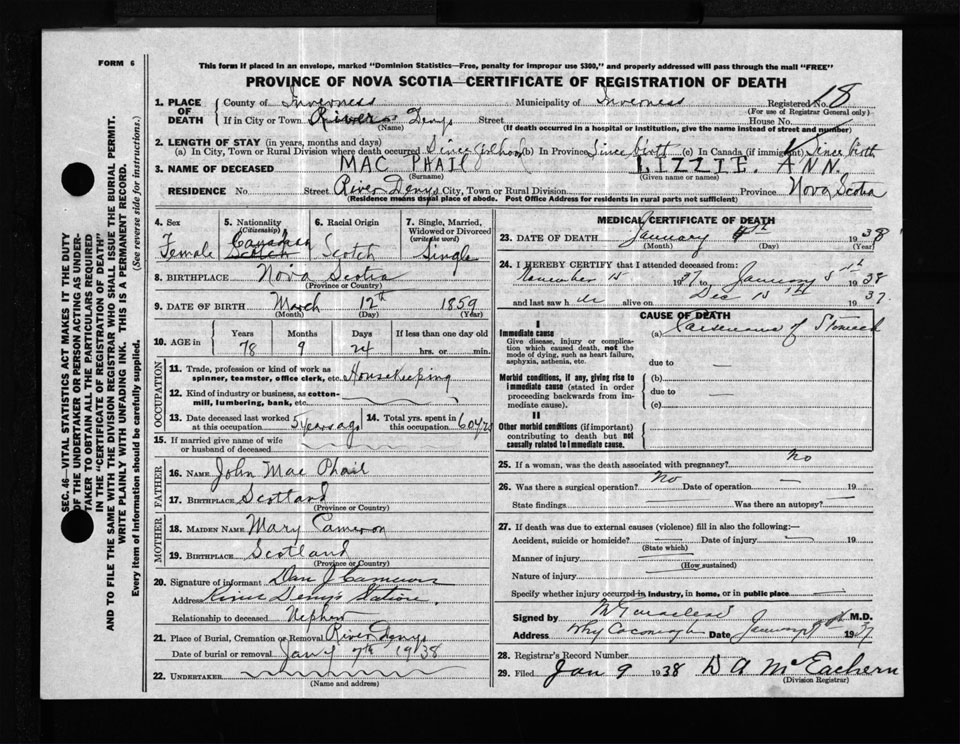 FORM 6
This form if placed in an envelope, marked "Dominion Statistics—Free, penalty for improper use $300," and properly addressed will pass through the mail "FREE"
PROVINCE OF NOVA SCOTIA—CERTIFICATE OF REGISTRATION OF DEATH
1. PLACE OF DEATH
County of Inverness Municipality of Inverness Registered No. 18
(For use of Registrar General only)
If in City or Town River Denys Street House No.
(Name) (If death occurred in a hospital or institution, give the name instead of street and number)
2. LENGTH OF STAY (in years, months and days)
(a) In City, Town or Rural Division where death occurred Since (b) In Province Since birth (c) In Canada (if immigrant) Since birth
3. NAME OF DECEASED MAC PHAIL LIZZIE. ANN.
(Surname) (Given name or names)
RESIDENCE No. Street River Denys City, Town or Rural Division Province Nova Scotia
(Residence means usual place of abode. Post Office Address for residents in rural parts not sufficient)
4. Sex Female
5. Nationality (Citizenship) Canadian Scotch
6. Racial Origin Scotch
7. Single, Married, Widowed or Divorced (write the word) Single
8. BIRTHPLACE Nova Scotia
(Province or Country)
9. DATE OF BIRTH March 12th 1859
(Month) (Day) (Year)
10. AGE in Years 78 Months 9 Days 24 If less than one day old hrs. or min.
OCCUPATION
11. Trade, profession or kind of work as spinner, teamster, office clerk, etc. Housekeeping
12. Kind of industry or business, as cotton-mill, lumbering, bank, etc.
13. Date deceased last worked at this occupation 5 years ago
14. Total yrs. spent in this occupation 60 yrs
15. If married give name of wife or husband of deceased
FATHER
16. NAME John Mac Phail
17. BIRTHPLACE Scotland
(Province or Country)
MOTHER
18. MAIDEN NAME Mary Cameron
19. BIRTHPLACE Scotland
(Province or Country)
20. Signature of informant Dan J Cameron
Address River Denys Station
Relationship to deceased Nephew
21. Place of Burial, Cremation or Removal River Denys
Date of burial or removal Jan 7th 1938
22. UNDERTAKER
(Name and address)
MEDICAL CERTIFICATE OF DEATH
23. DATE OF DEATH January 1938
(Month) (Day) (Year)
24. I HEREBY CERTIFY that I attended deceased from:
November 15 1937 to January 5 1938
and last saw her alive on Dec 15th 1937.
CAUSE OF DEATH
I
Immediate cause (a) Carcinoma of Stomach
Give disease, injury or complication which caused death, not the mode of dying, such as heart failure, asphyxia, asthenia, etc.
due to
Morbid conditions, if any, giving rise to immediate cause (stated in order proceeding backwards from immediate cause).
(b)
due to
(c)
II
Other morbid conditions (if important) contributing to death but not causally related to immediate cause.
25. If a woman, was the death associated with pregnancy? no
26. Was there a surgical operation? No Date of operation — 19
State findings Was there an autopsy?
27. If death was due to external causes (violence) fill in also the following:—
Accident, suicide or homicide? Date of injury 19
(State which)
Manner of injury
(How sustained)
Nature of injury
Specify whether injury occurred in industry, in home, or in public place
Signed by M.D.
Address Whycocomagh Date January 1937
28. Registrar's Record Number
29. Filed Jan 9 1938 D A McEachern
(Division Registrar)
SEC. 46—VITAL STATISTICS ACT MAKES IT THE DUTY
OF THE UNDERTAKER OR PERSON ACTING AS UNDER-
TAKER TO OBTAIN ALL THE PARTICULARS REQUIRED
IN THE "CERTIFICATE OF REGISTRATION OF DEATH"
AND TO FILE THE SAME WITH THE DIVISION REGISTRAR WHO SHALL ISSUE THE BURIAL PERMIT.
WRITE PLAINLY WITH UNFADING INK. THIS IS A PERMANENT RECORD.
Every item of information should be carefully supplied. (See reverse side for instructions.)